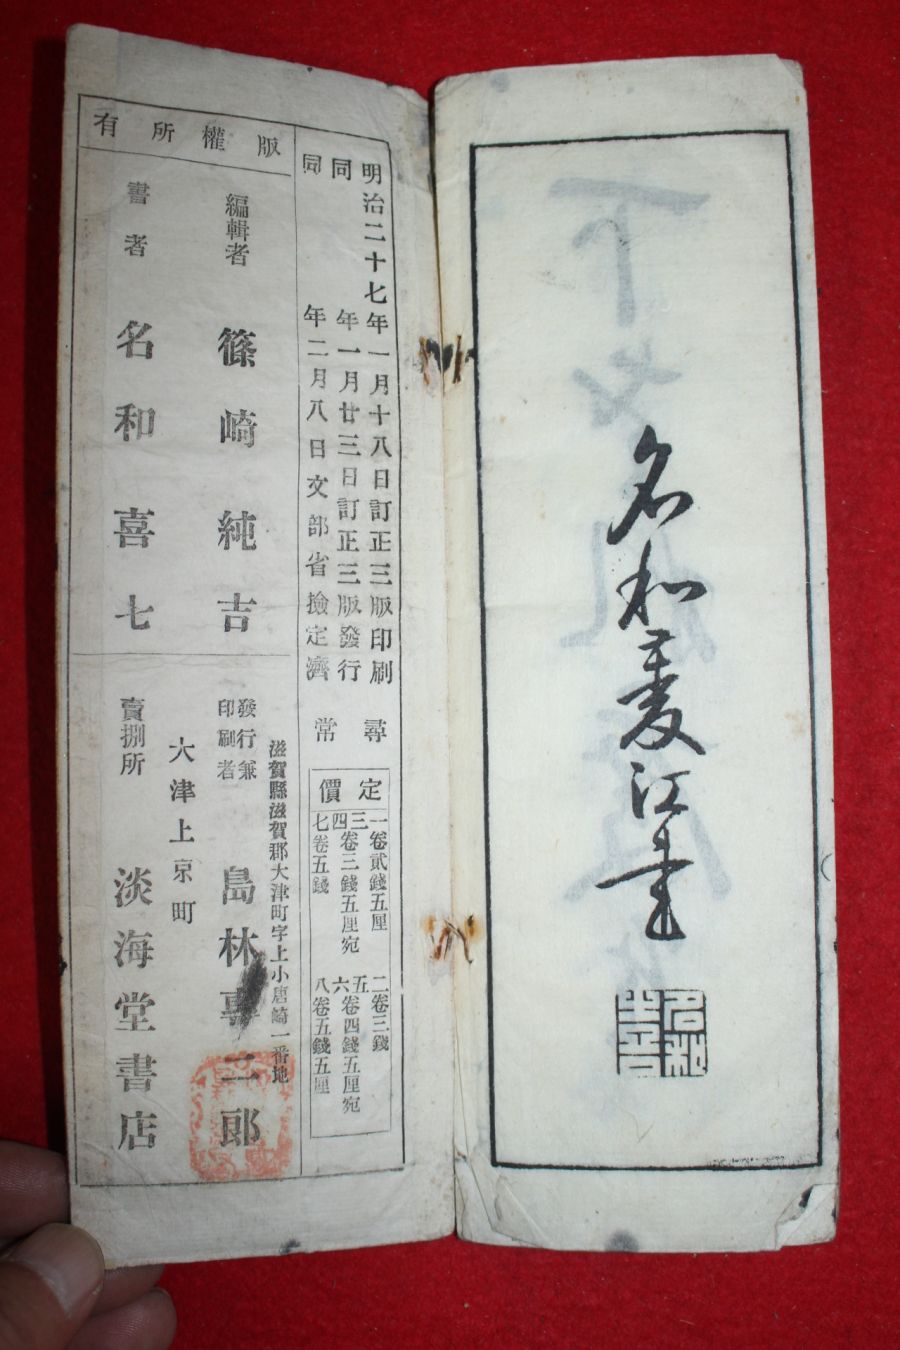 名和菱江書
明治二十七年一月十八日訂正三版印刷
同年一月廿三日訂正三版發行
同年二月八日文部省撿定濟
尋常
定價
一卷貳錢五厘
二卷三錢
三四卷三錢五厘宛
五六卷四錢五厘宛
七卷五錢
八卷五錢五厘
版權所有
編輯者 篠崎純吉
書者 名和喜七
滋賀縣滋賀郡大津町字上小唐崎一番地
發行兼印刷者 島林專二郎
大津上京町
賣捌所 淡海堂書店